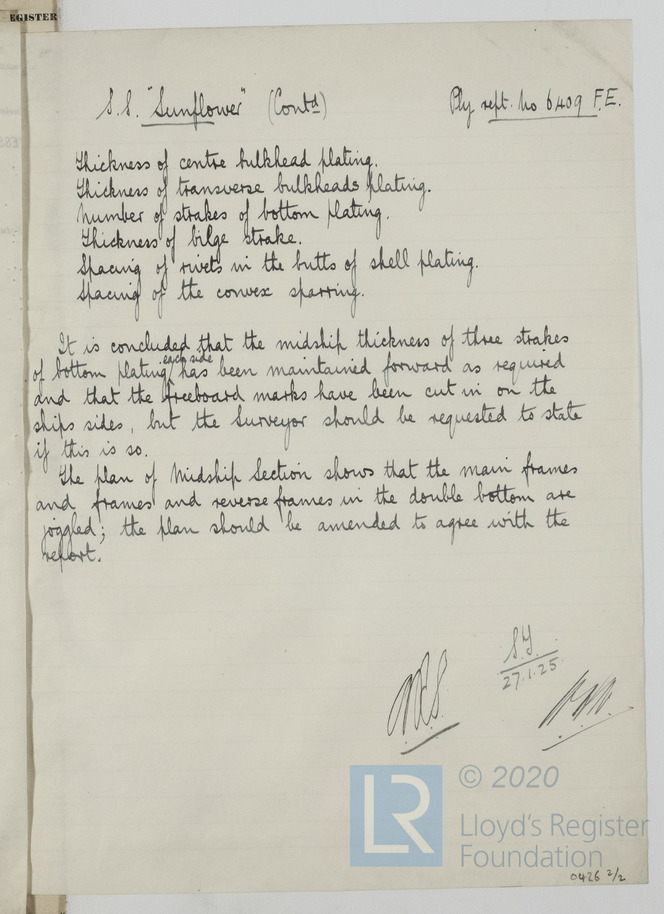 EGISTER
S.S. "Sunflower" (Contd) Ply rept. No 6409 F.E.
Thickness of centre bulkhead plating.
Thickness of transverse bulkheads plating.
Number of strakes of bottom plating.
Thickness of bilge strake.
Spacing of rivets in the butts of shell plating.
Spacing of the convex sparring.
It is concluded that the midship thickness of three strakes
of bottom plating each side has been maintained forward as required
and that the freeboard marks have been cut in on the
ships sides, but the Surveyor should be requested to state
if this is so.
The plan of Midship Section shows that the main frames
and frames and reverse frames in the double bottom are
joggled; the plan should be amended to agree with the
report.
27.1.25
© 2020
LR
Lloyd's Register
Foundation
0426 2/2